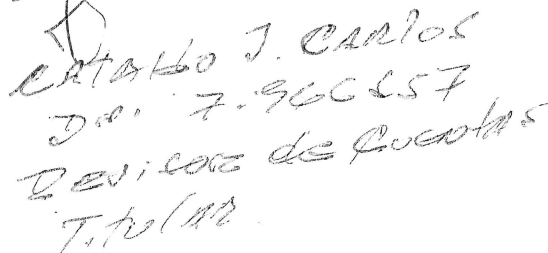 CATALDO J. CARLOS
DNI. 7.966257
Revisore de Cuentas
Titular